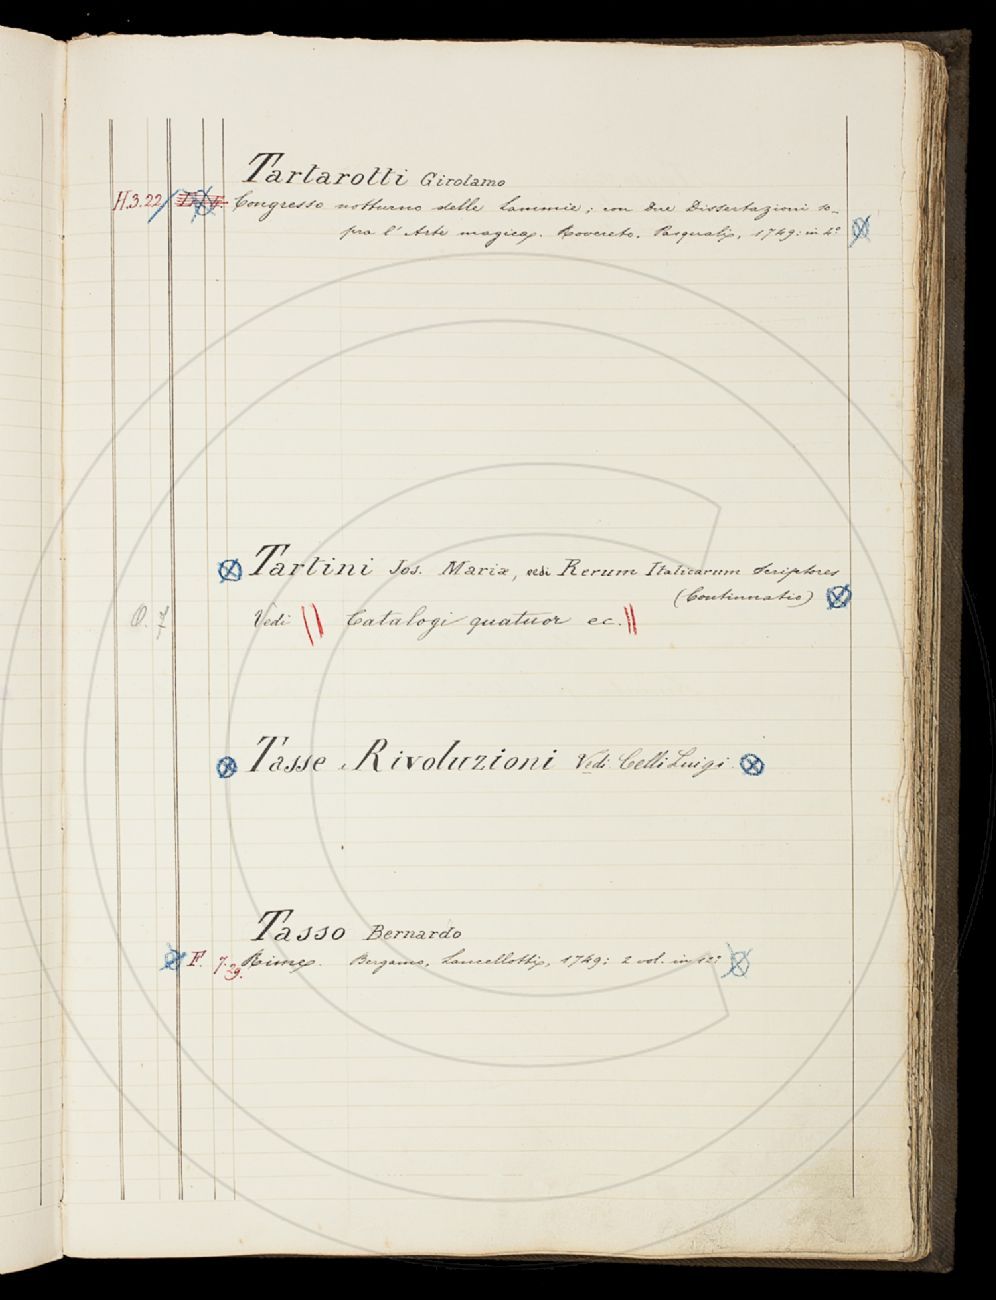 Tartarotti Girolamo
H.3.22 Congresso notturno delle Lammie; con due Dissertazioni so-
pra l'Arte magica. Rovereto, Pasquali, 1749: in 4°
Tartini Jos. Mariæ, vedi Rerum Italicarum Scriptores
(Continuatio)
O. Vedi Catalogi quatuor ec.
Tasse e Rivoluzioni Vedi Celli Luigi
Tasso Bernardo
F. 7. 29. Rime. Bergamo, Lancellotti, 1749: 2 vol. in 12°